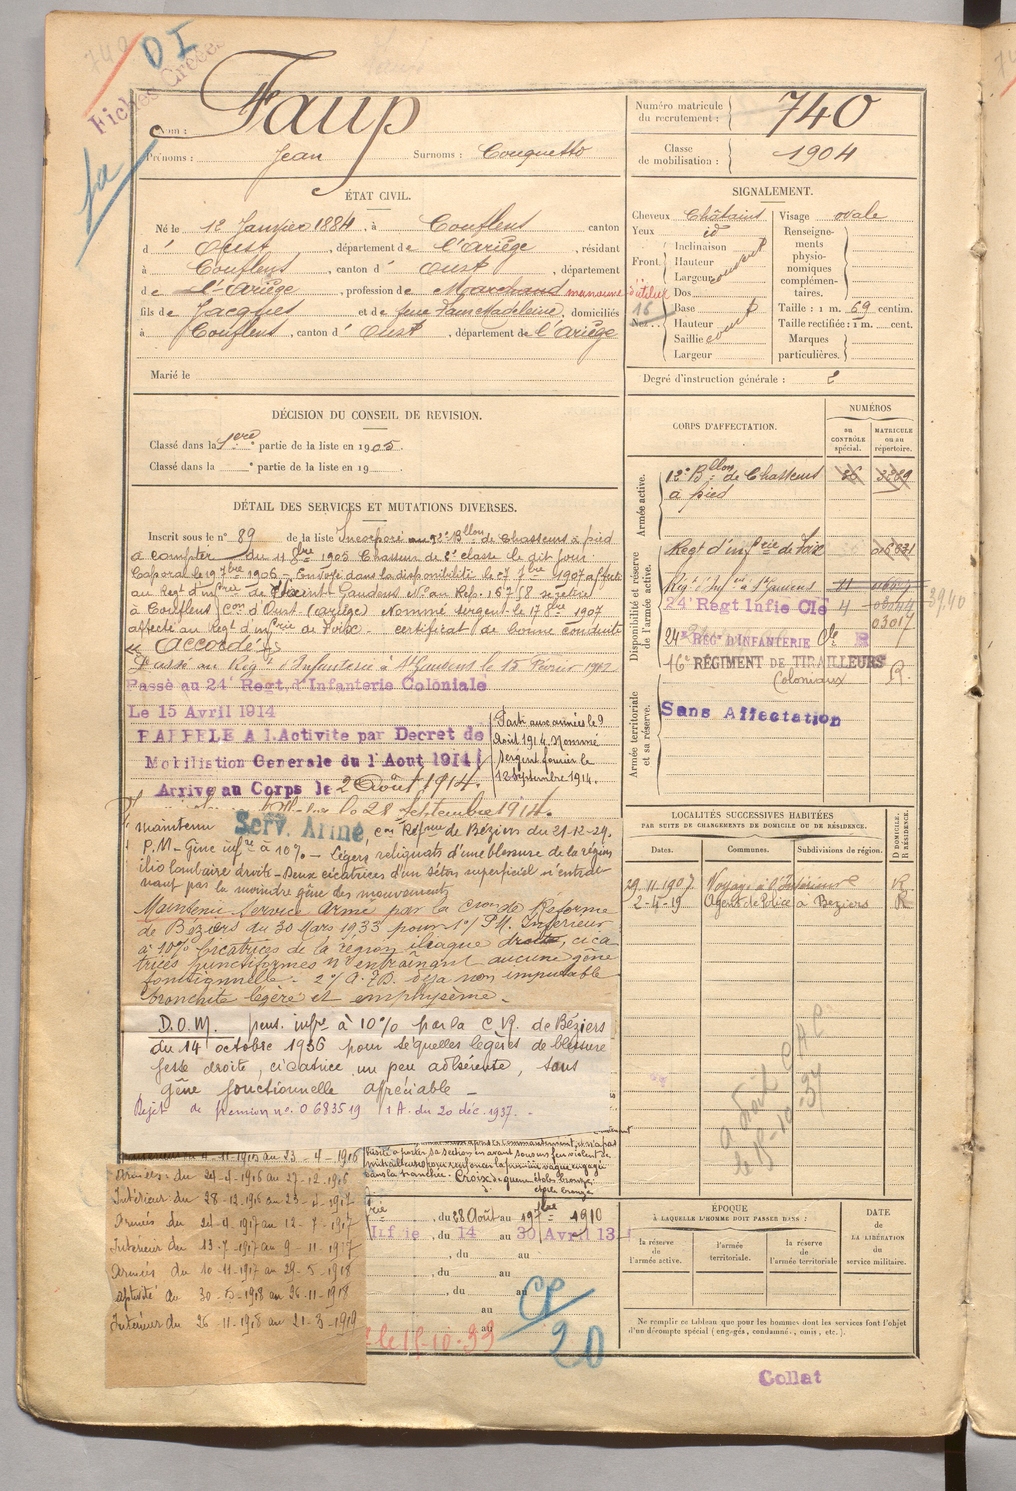 740
O I
Fiches Créées
fa
Nom : Faup
Prénoms : Jean Surnoms : Couquetto
Numéro matricule du recrutement : 740
Classe de mobilisation : 1904
ÉTAT CIVIL.
Né le 12 Janvier 1884, à Couflens canton
d' Oust, département de l'Ariège, résidant
à Couflens, canton d' Oust, département
de l'Ariège, profession de Marchand manœuvre d'atelier
fils de Jacques et de feue Faur Madeleine, domiciliés
à Couflens, canton d' Oust, département de l'Ariège
Marié le
SIGNALEMENT.
Cheveux Châtains
Yeux id
Front Inclinaison
Hauteur
Largeur
couvert
Nez Dos
Base
Hauteur
Saillie
Largeur
16
Visage ovale
Renseignements physionomiques complémentaires.
Taille : 1 m. 69 centim.
Taille rectifiée : 1 m. cent.
Marques particulières.
Degré d'instruction générale : 2
DÉCISION DU CONSEIL DE REVISION.
Classé dans la 1ère partie de la liste en 1905.
Classé dans la partie de la liste en 19
DÉTAIL DES SERVICES ET MUTATIONS DIVERSES.
Inscrit sous le n° 89 de la liste Incorporé au 12e Bllon de Chasseurs à pied
à compter du 11 8bre 1905 Chasseur de 2e classe le dit jour.
Caporal le 19 7bre 1906 - Envoyé dans la disponibilité le 27 7bre 1907 affecté
au Régt d'infrie de Saint Gaudens No au Rép. 16758 se retire
à Couflens con d'Oust (ariège) Nommé sergent le 17 8bre 1907
affecté au Régt d'infrie de Foix. certificat de bonne conduite
« Accordé »
Passé au Régt d'Infanterie à St Gaudens le 15 Février 1912
Passé au 24e Regt. d'Infanterie Coloniale
Le 15 Avril 1914
RAPPELE A L'Activite par Decret de
Mobilistion Generale du 1 Aout 1914
Arrive au Corps le 2 Août 1914.
Parti aux armées le 9
Août 1914. Nommé
sergent fourrier le
12 Septembre 1914.
le 28 Septembre 1914.
Maintenu Serv. Armé con Réfme de Béziers du 21-12-29.
P.M - Gêne infre à 10% - Légers reliquats d'une blessure de la région
ilio lombaire droite - Deux cicatrices d'un séton superficiel n'entrai-
nant pas la moindre gêne des mouvements
Maintenu Service Armé par la Cion de Réforme
de Béziers du 30 Mars 1933 pour 1°/ P.M. Inférieur
à 10% Cicatrices de la région iliaque droite, cica
trices punctiformes n'entraînant aucune gêne
fonctionnelle - 2°/ A.P.D. déjà non imputable
bronchite légère et emphysème.
D.O.M. pens. infre à 10% par la C.R. de Béziers
du 14 octobre 1936 pour séquelles légères de blessure
fesse droite, cicatrice un peu adhérente, sans
gêne fonctionnelle appréciable -
Rejet de pension no. 0.683519 1 A. du 20 déc. 1937.
au 23 - 4 - 1916
Armées : du 24-4-1916 au 27-12-1916
Intérieur du 28-12-1916 au 23-4-1917
Armées du 24-4-1917 au 12-7-1917
Intérieur du 13-7-1917 au 9-11-1917
Armées du 10-11-1917 au 29-5-1918
Captivité du 30-5-1918 au 26-11-1918
Intérieur du 26-11-1918 au 21-3-1919
à porter sa section en avant sous un feu violent de
mitrailleuses pour renforcer la première vague engagée
dans la tranchée. Croix de guerre étoile bronze
étoile bronze
, du 28 Août au 19 7bre 1910
Infie, du 14 au 30 Avril 13
, du au
, du au
au
au
le 15-10-33
CP
20
CORPS D'AFFECTATION.
NUMÉROS
au CONTRÔLE spécial.
MATRICULE ou au répertoire.
Armée active.
12e Bllon de Chasseurs à pied 3289
Disponibilité et réserve de l'armée active.
Régt d'infrie de Foix
Régt d'Infrie St Gaudens
24e Régt Infie Cle 4
03017
24e REGt D'INFANTERIE Cle R
16e RÉGIMENT DE TIRAILLEURS
Coloniaux R.
Armée territoriale et sa réserve.
Sans Affectation
LOCALITÉS SUCCESSIVES HABITÉES
PAR SUITE DE CHANGEMENTS DE DOMICILE OU DE RÉSIDENCE.
Dates. Communes. Subdivisions de région. D DOMICILE. R RÉSIDENCE.
29.11.1907 Voyage à l'Intérieur R
2-4-19 Agent de Police à Béziers R
le 15-10-37
ÉPOQUE
À LAQUELLE L'HOMME DOIT PASSER DANS :
la réserve de l'armée active.
l'armée territoriale.
la réserve de l'armée territoriale
DATE de LA LIBÉRATION du service militaire.
Ne remplir ce tableau que pour les hommes dont les services font l'objet
d'un décompte spécial (engagés, condamné-, omis, etc.).
Collat